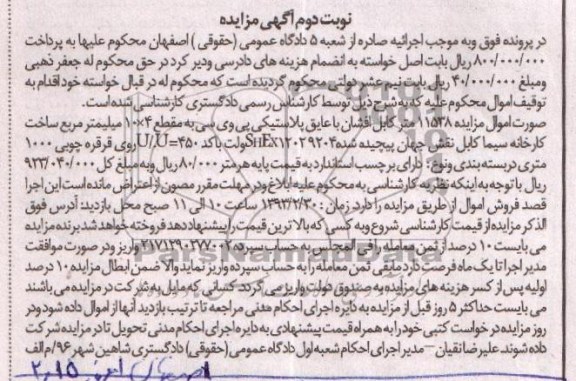 نوبت دوم آگهی مزایده
در پرونده فوق وبه موجب اجرائیه صادره از شعبه ۵ دادگاه عمومی (حقوقی ) اصفهان محکوم علیها به پرداخت
۸۰۰/۰۰۰/۰۰۰ ریال بابت اصل خواسته به انضمام هزینه های دادرسی ودیر کرد در حق محکوم له جعفر ذهبی
ومبلغ ۴۰/۰۰۰/۰۰۰ ریال بابت نیم عشر دولتی محکوم گردیده است که محکوم له در قبال خواسته خود اقدام به
توقیف اموال محکوم علیه که به شرح ذیل توسط کارشناس رسمی دادگستری کارشناسی شده است.
صورت اموال مزایده ۱۱۵۳۸ متر کابل افشان با عایق پلاستیکی پی وی سی به مقطع ۴×۱۰ میلیمتر مربع ساخت
کارخانه سیما کابل نقش جهان پیچیده شده SHEx۱۲۰۲۹۲۰۴ ولت باکد U/U=۴۵۰ روی قرقره چوبی ۱۰۰۰
متری دربسته بندی ونوع . دارای برچسب استاندارد به قیمت پایه هر متر ۸۰/۰۰۰ ریال وبه مبلغ کل ۹۲۳/۰۴۰/۰۰۰
ریال با توجه به اینکه نظریه کارشناسی به محکوم علیه ابلاغ ودر مهلت مقرر مصون از اعتراض مانده است این اجرا
قصد فروش اموال از طریق مزایده را دارد. زمان : ۱۳۹۳/۲/۳۰ ساعت ۱۰ الی ۱۱ صبح محل بازدید: آدرس فوق
الذکر مزایده از قیمت کارشناسی شروع وبه کسی که بالاترین قیمت را پیشنهاد دهد فروخته خواهد شد برنده مزایده
می بایست ۱۰ درصد از ثمن معامله رافی المجلس به حساب سپرده ۲۱۷۱۲۹۰۲۷۷۰۰۲ واریز ودر صورت موافقت
مدیر اجرا تا یک ماه فرصت دارد مابقی ثمن معامله را به حساب سپرده واریز نماید والا ضمن ابطال مزایده ۱۰ درصد
اولیه پس از کسر هزینه های مزایده به صندوق دولت واریز می گردد کسانی که مایل به شرکت در مزایده می باشند
می بایست حداکثر ۵ روز قبل از مزایده به دایره اجرای احکام مدنی مراجعه تا ترتیب بازدید آنها از اموال داده شود ودر
روز مزایده درخواست کتبی خود را به همراه قیمت پیشنهادی به دایره اجرای احکام مدنی تحویل تا در مزایده شرکت
داده شوند. علیرضا نقیان – مدیر اجرای احکام شعبه اول دادگاه عمومی (حقوقی) دادگستری شاهین شهر ۹۶/م الف
ParsNamadData